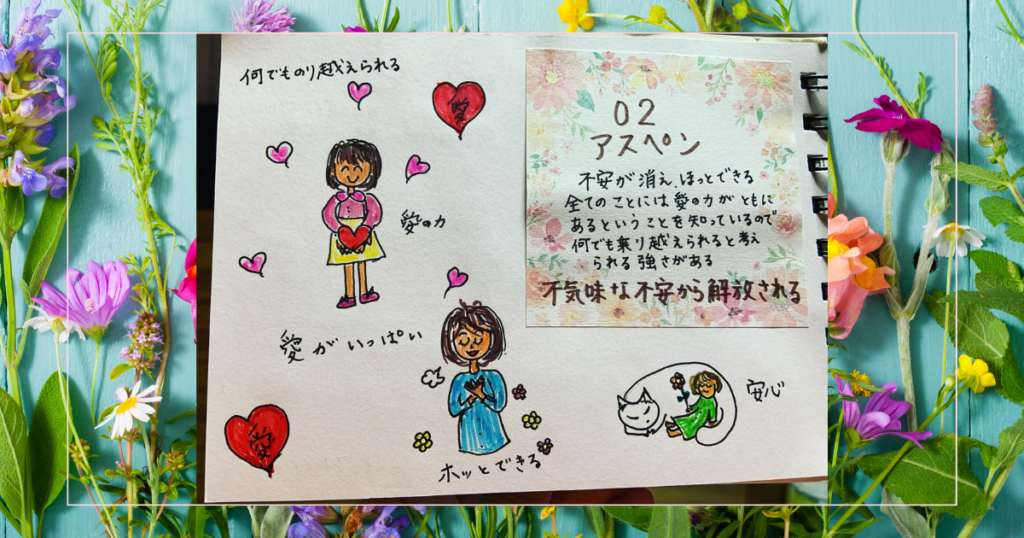 何でものり越えられる
愛
愛の力
愛がいっぱい
愛
ホッとできる
02
アスペン
不安が消え、ほっとできる
全てのことには愛の力がともに
あるということを知っているので
何でも乗り越えられると考え
られる強さがある
不気味な不安から解放される
安心